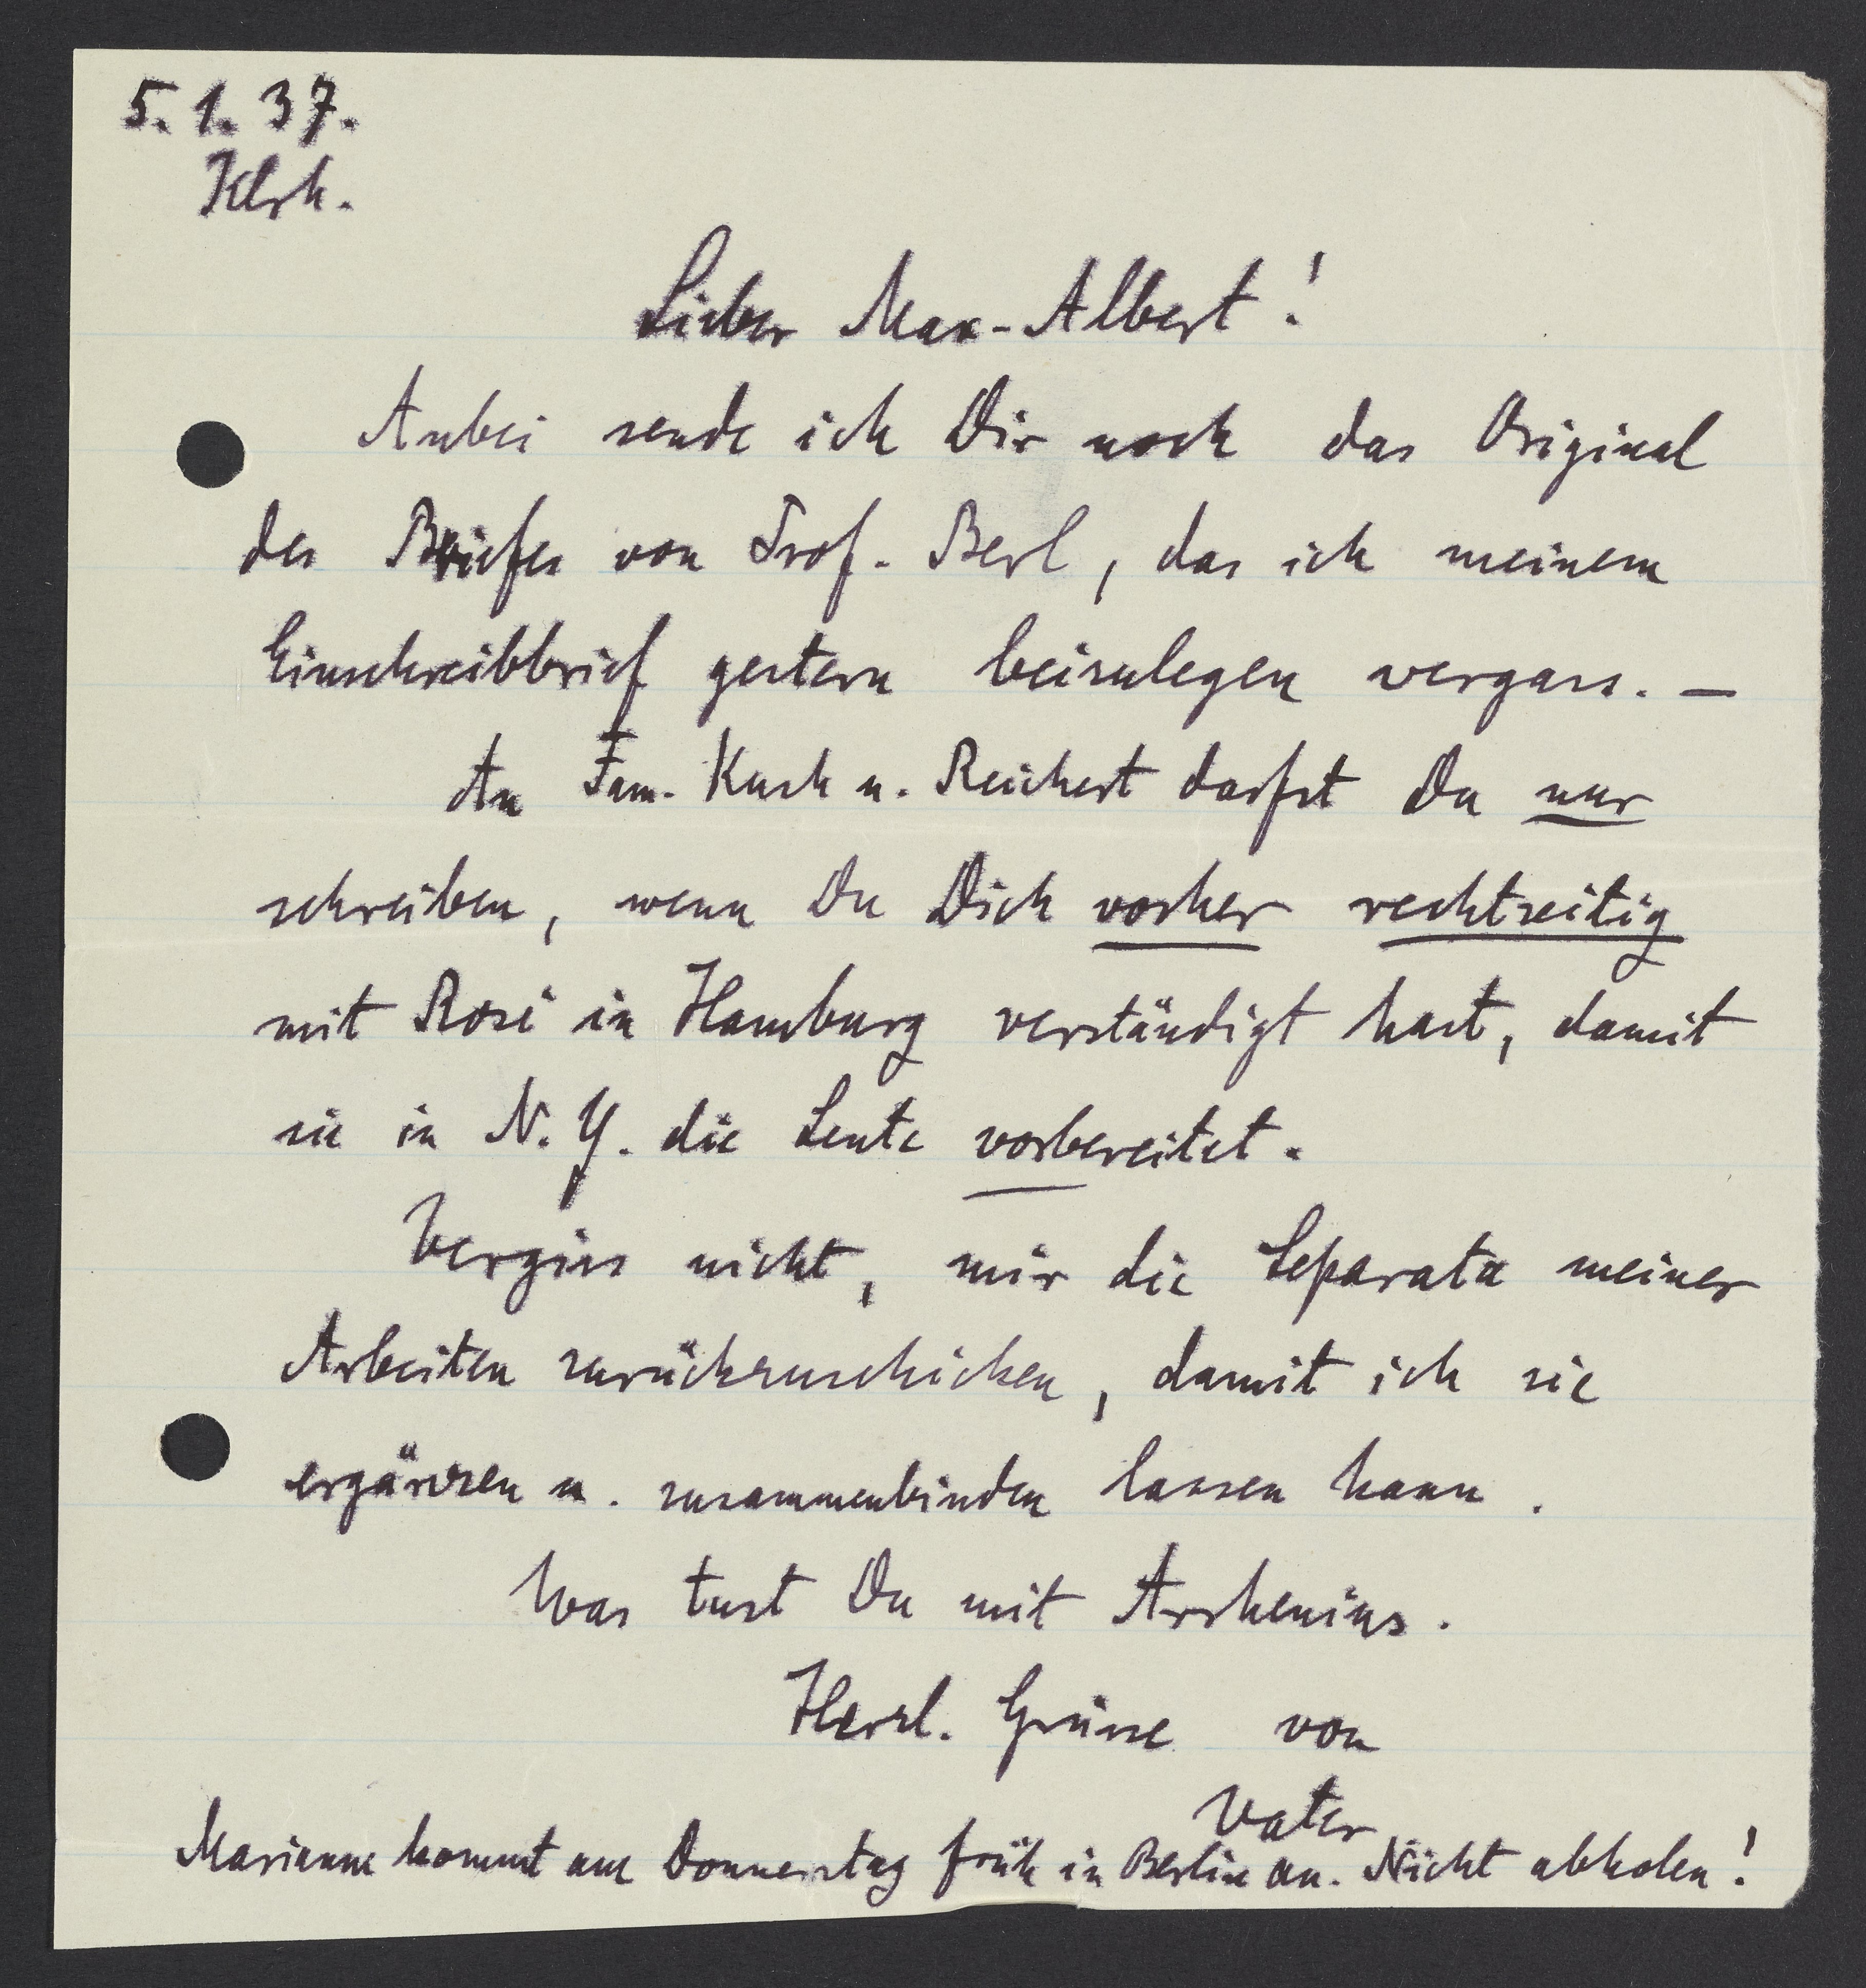 5. 1. 37.
Klrh.
Lieber Max-Albert!
Anbei sende ich Dir noch das Original
des Briefes von Prof. Berl, das ich meinem
Einschreibbrief gestern beizulegen vergass. —
An Fam. Kush u. Reichert darfst Du nur
schreiben, wenn Du Dich vorher rechtzeitig
mit Rosi in Hamburg verständigt hast, damit
sie in N.Y. die Leute vorbereitet.
Vergiss nicht, mir die Separata meiner
Arbeiten zurückzuschicken, damit ich sie
ergänzen u. zusammenbinden lassen kann.
Was tust Du mit Arrhenius.
Herzl. Grüsse von
Vater
Marianne kommt am Donnerstag früh in Berlin an. Nicht abholen!